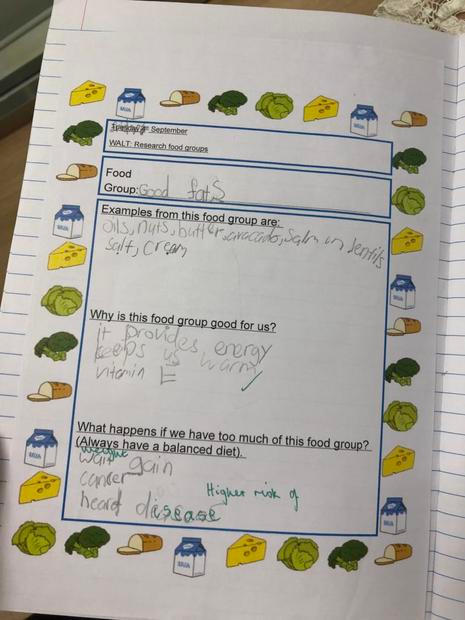 September
WALT: Research food groups
Food
Group: Good fats
Examples from this food group are:
oils, nuts, butter, avacado, salm on lentils
salt, cream
Why is this food group good for us?
it provides energy
keeps us warm
vitamin E
What happens if we have too much of this food group?
(Always have a balanced diet).
weight
wait gain
cancer
Higher risk of
heard disease
Milk
Milk
Milk
Milk
Milk
Milk
Milk